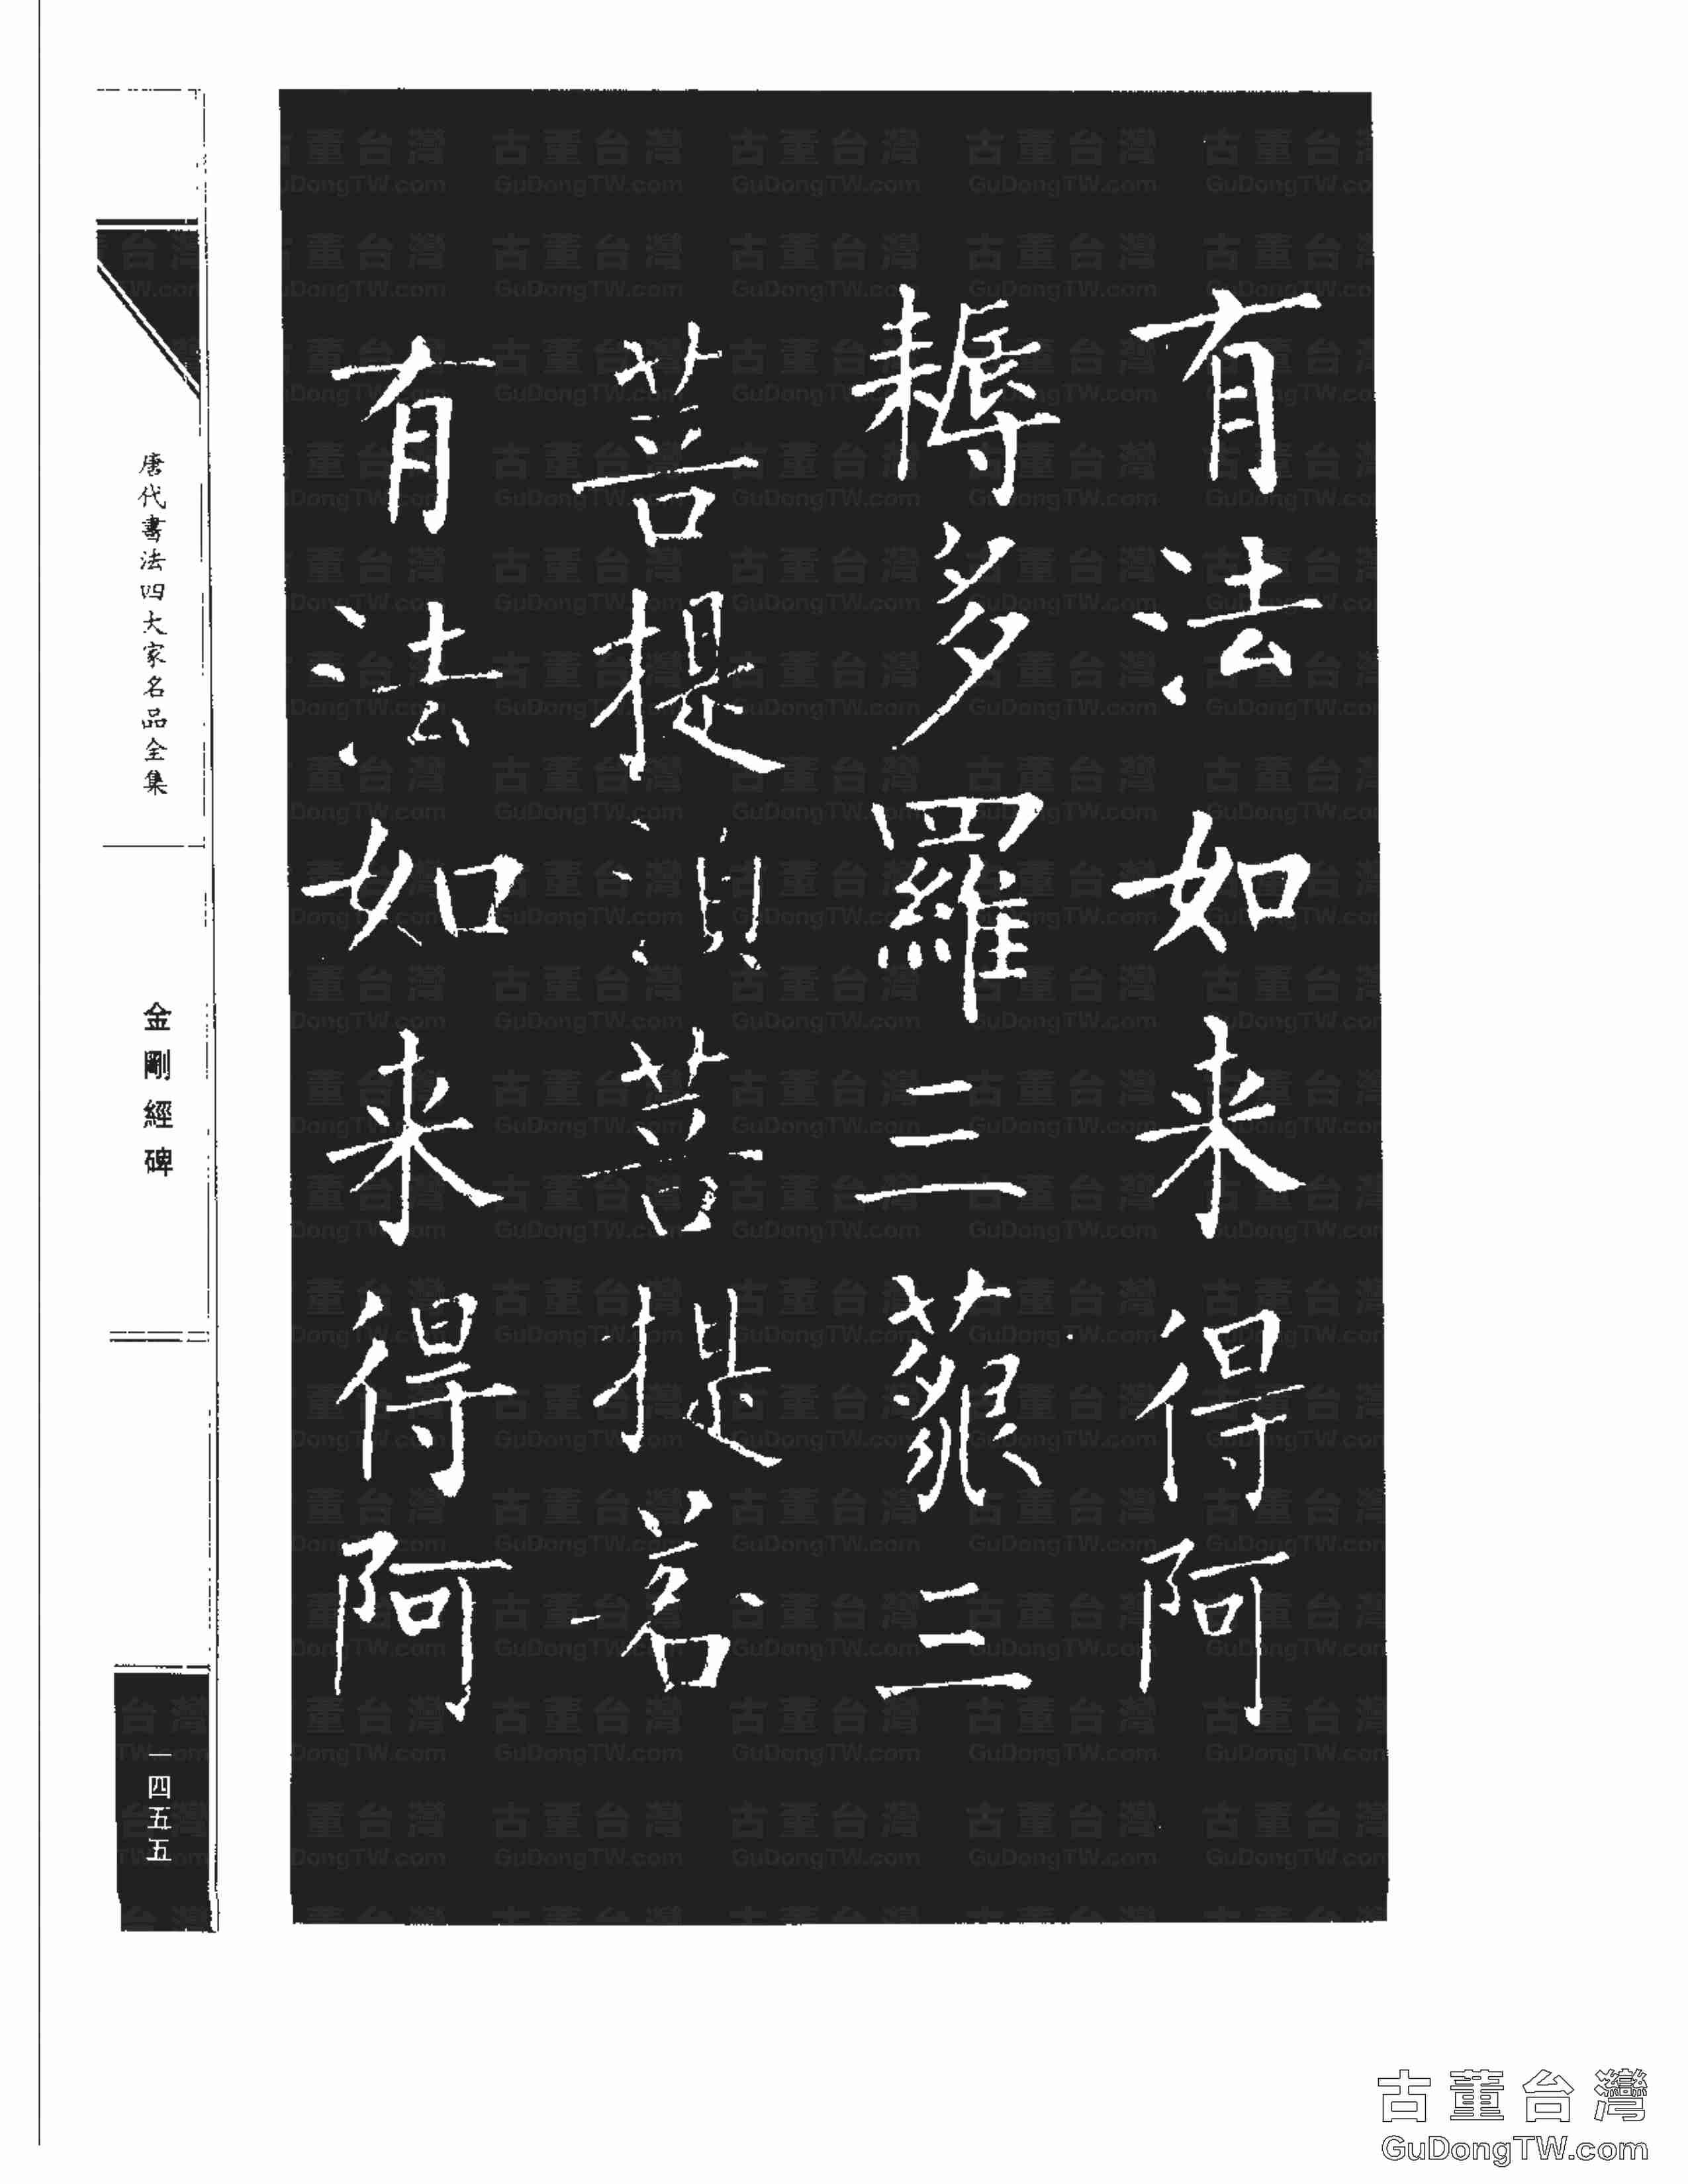 有法如来得阿
耨多羅三藐三
菩提湏菩提若
有法如来得阿
唐代書法四大家名品全集
金剛經碑
一四五五
古董台灣
GuDongTW.com